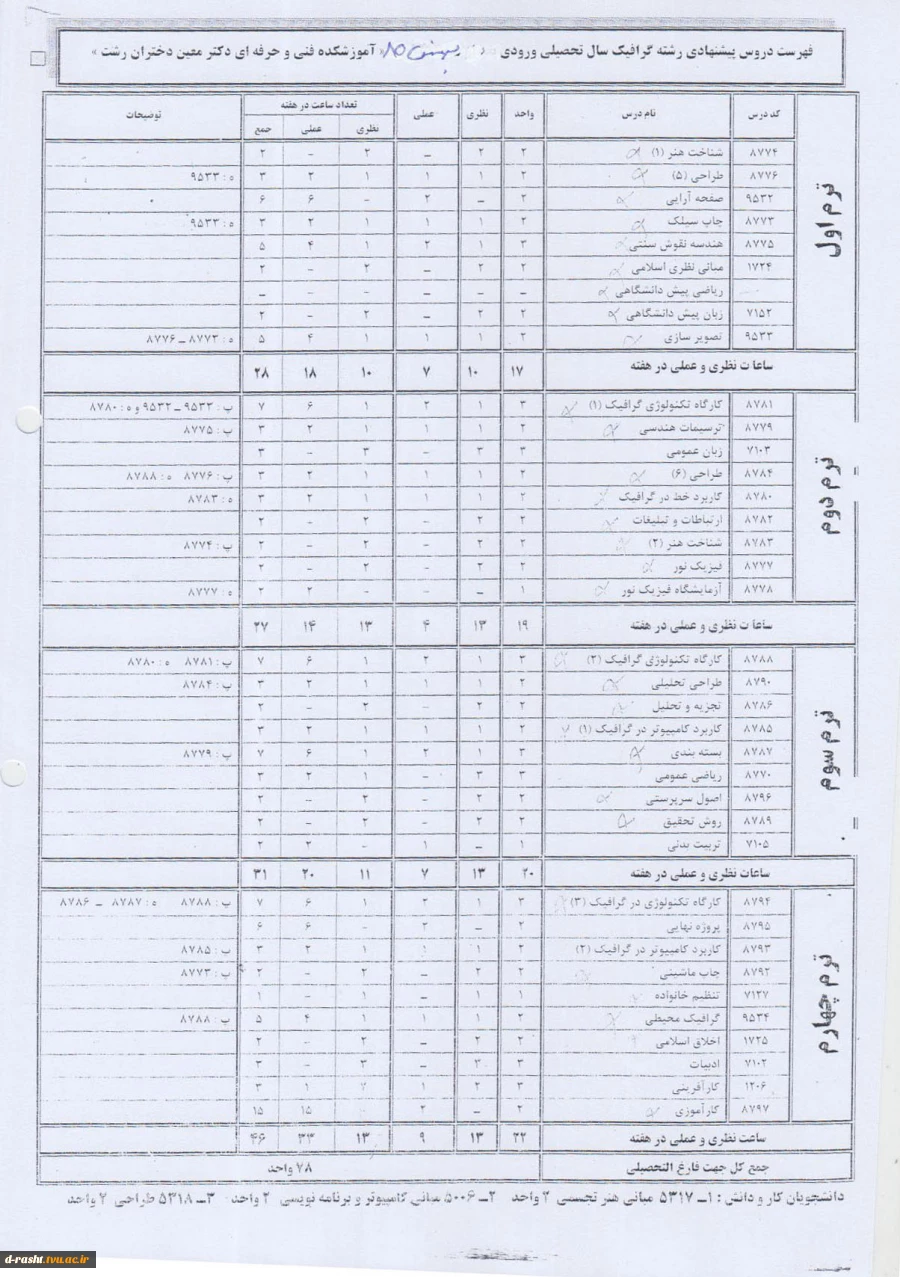 فهرست دروس پیشنهادی رشته گرافیک سال تحصیلی ورودی بهمن ۸۵ « آموزشکده فنی و حرفه ای دکتر معین دختران رشت »
کد درس نام درس واحد نظری عملی تعداد ساعت در هفته توضیحات
نظری عملی جمع
ترم اول
۸۷۷۴ شناخت هنر (۱) ۲ ۲ – ۲ – ۲
۸۷۷۶ طراحی (۵) ۲ ۱ ۱ ۱ ۲ ۳ ه : ۹۵۳۳
۹۵۳۲ صفحه آرایی ۲ – ۲ – ۶ ۶
۸۷۷۳ چاپ سیلک ۲ ۱ ۱ ۱ ۲ ۳ ه : ۹۵۳۳
۸۷۷۵ هندسه نقوش سنتی ۳ ۱ ۲ ۱ ۴ ۵
۱۷۲۴ مبانی نظری اسلامی ۲ ۲ – ۲ – ۲
ریاضی پیش دانشگاهی – – – – – –
۷۱۵۲ زبان پیش دانشگاهی ۲ ۲ – ۲ – ۲
۹۵۳۳ تصویر سازی ۲ ۱ ۱ ۱ ۴ ۵ ه : ۸۷۷۳ – ۸۷۷۶
ساعات نظری و عملی در هفته ۱۷ ۱۰ ۷ ۱۰ ۱۸ ۲۸
ترم دوم
۸۷۸۱ کارگاه تکنولوژی گرافیک (۱) ۳ ۱ ۲ ۱ ۶ ۷ پ : ۹۵۳۳ – ۹۵۳۲ و ه : ۸۷۸۰
۸۷۷۹ ترسیمات هندسی ۲ ۱ ۱ ۱ ۲ ۳ پ : ۸۷۷۵
۷۱۰۳ زبان عمومی ۳ ۳ – ۳ – ۳
۸۷۸۴ طراحی (۶) ۲ ۱ ۱ ۱ ۲ ۳ پ : ۸۷۷۶ ه : ۸۷۸۸
۸۷۸۰ کاربرد خط در گرافیک ۲ ۱ ۱ ۱ ۲ ۳ ه : ۸۷۸۳
۸۷۸۲ ارتباطات و تبلیغات ۲ ۲ – ۲ – ۲
۸۷۸۳ شناخت هنر (۲) ۲ ۲ – ۲ – ۲ پ : ۸۷۷۴
۸۷۷۷ فیزیک نور ۲ ۲ – ۲ – ۲
۸۷۷۸ آزمایشگاه فیزیک نور ۱ – ۱ – ۲ ۲ ه : ۸۷۷۷
ساعات نظری و عملی در هفته ۱۹ ۱۳ ۴ ۱۳ ۱۴ ۲۷
ترم سوم
۸۷۸۸ کارگاه تکنولوژی گرافیک (۲) ۳ ۱ ۲ ۱ ۶ ۷ پ : ۸۷۸۱ ه : ۸۷۸۰
۸۷۹۰ طراحی تحلیلی ۲ ۱ ۱ ۱ ۲ ۳ پ : ۸۷۸۴
۸۷۸۶ تجزیه و تحلیل ۲ ۲ – ۲ – ۲
۸۷۸۵ کاربرد کامپیوتر در گرافیک (۱) ۲ ۱ ۱ ۱ ۲ ۳
۸۷۸۷ بسته بندی ۳ ۱ ۲ ۱ ۶ ۷ پ : ۸۷۷۹
۸۷۷۰ ریاضی عمومی ۳ ۳ – ۱ ۲ ۳
۸۷۹۶ اصول سرپرستی ۲ ۲ – ۲ – ۲
۸۷۸۹ روش تحقیق ۲ ۲ – ۲ – ۲
۷۱۰۵ تربیت بدنی ۱ – ۱ – ۲ ۲
ساعات نظری و عملی در هفته ۲۰ ۱۳ ۷ ۱۱ ۲۰ ۳۱
ترم چهارم
۸۷۹۴ کارگاه تکنولوژی در گرافیک (۳) ۳ ۱ ۲ ۱ ۶ ۷ پ : ۸۷۸۸ ه : ۸۷۸۷ – ۸۷۸۶
۸۷۹۵ پروژه نهایی ۲ – ۲ – ۶ ۶
۸۷۹۳ کاربرد کامپیوتر در گرافیک (۲) ۲ ۱ ۱ ۱ ۲ ۳ پ : ۸۷۸۵
۸۷۹۲ چاپ ماشینی ۲ ۲ – ۲ – ۲ پ : ۸۷۷۳
۷۱۲۷ تنظیم خانواده ۱ ۱ – ۱ – ۱
۹۵۳۴ گرافیک محیطی ۲ ۱ ۱ ۱ ۴ ۵ پ : ۸۷۸۸
۱۷۲۵ اخلاق اسلامی ۲ ۲ – ۲ – ۲
۷۱۰۲ ادبیات ۳ ۳ – ۳ – ۳
۱۲۰۶ کارآفرینی ۳ ۲ ۱ ۲ ۱ ۳
۸۷۹۷ کارآموزی ۲ – ۲ ۱۵ ۱۵
ساعت نظری و عملی در هفته ۲۲ ۱۳ ۹ ۱۳ ۳۳ ۴۶
جمع کل جهت فارغ التحصیلی ۷۸ واحد
دانشجویان کار و دانش : ۱ـ ۵۳۱۷ مبانی هنر تجسمی ۲ واحد ۲ـ ۵۰۰۶ مبانی کامپیوتر و برنامه نویسی ۲ واحد ۳ـ ۵۳۱۸ طراحی ۲ واحد
d-rasht.tvu.ac.ir